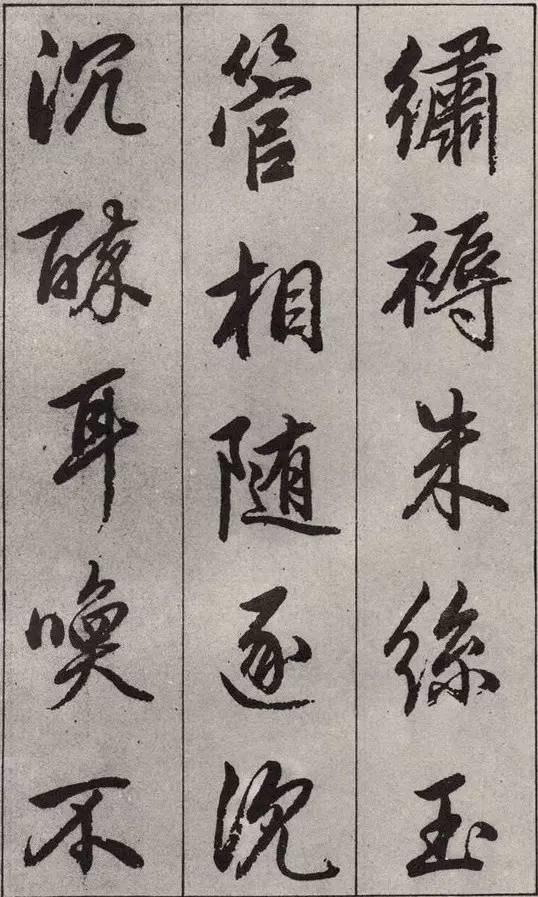 繡褥朱絲玉
管相随逐沉
沉醉耳喚不